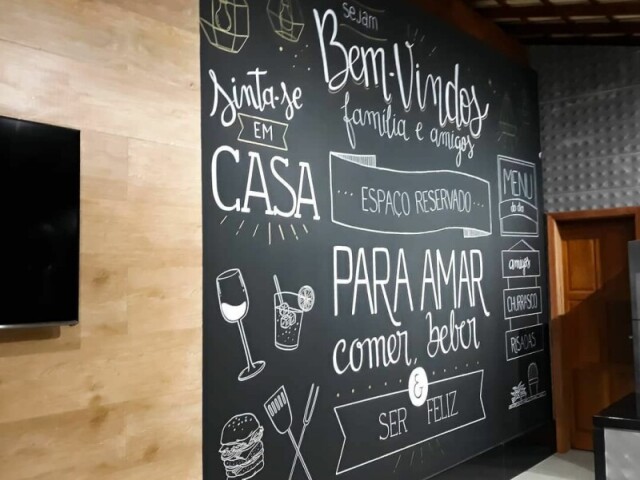 sejam
Bem-Vindos
família e amigos
Sinta-se
EM
CASA
ESPAÇO RESERVADO
PARA AMAR
comer, beber
&
SER FELIZ
MENU
do dia
amigos
CHURRASCO
RISADAS